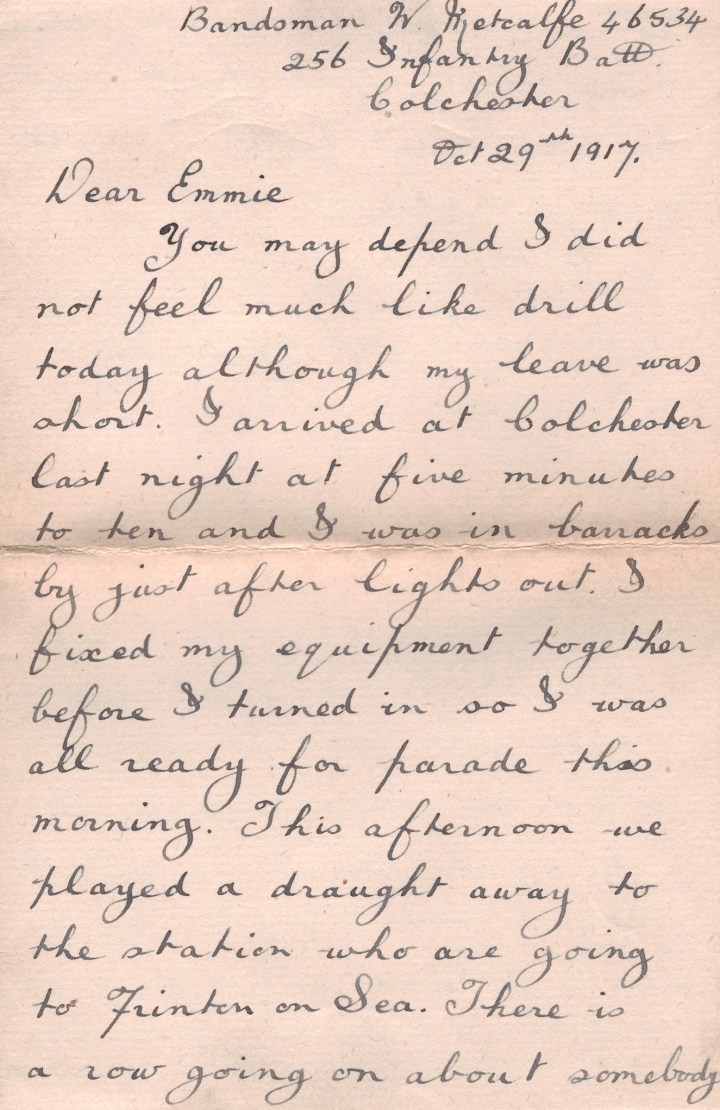 Bandsman W. Metcalfe 46534
256 Infantry Batt.
Colchester
Oct 29th 1917.
Dear Emmie
You may depend I did
not feel much like drill
today although my leave was
short. I arrived at Colchester
last night at five minutes
to ten and I was in barracks
by just after lights out. I
fixed my equipment together
before I turned in so I was
all ready for parade this
morning. This afternoon we
played a draught away to
the station who are going
to Frinton on Sea. There is
a row going on about somebody